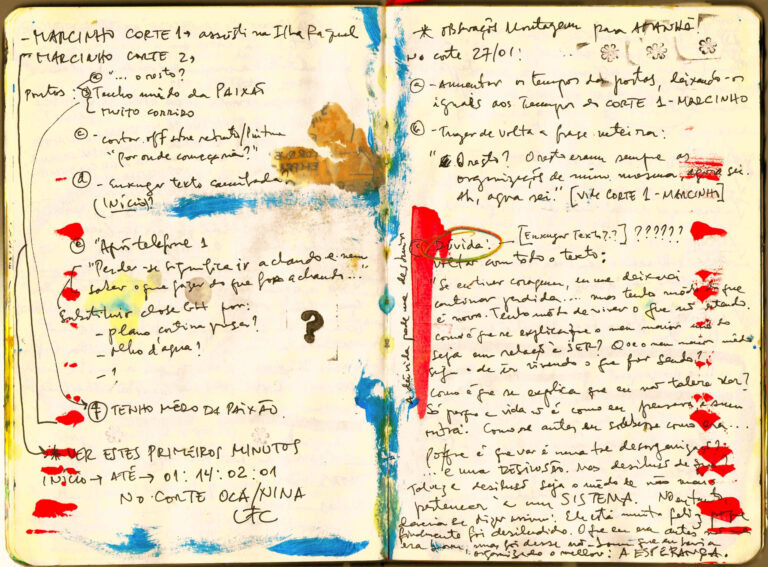 - MARCINHO CORTE 1 → assisti na Ilha Raquel
MARCINHO CORTE 2,
ⓐ "... o resto?
pontos: ⓑ Tenho medo da PAIXÃO
MUITO CORRIDO
ⓒ - cortar off sobre retrato/
"por onde começaria?"
ⓓ - Enxugar texto
(INÍCIO)?
ⓔ "Após telefone 1
"Perder-se significa ir achando e nem
saber o que fazer do que for achando..."
Substituir close GH por:
- plano cortina
- olho d'água?
- ?
?
ⓕ TENHO MEDO DA PAIXÃO.
* VER ESTES PRIMEIROS MINUTOS
INÍCIO → ATÉ → 01:14:02:01
NO CORTE OCA/NINA
CTC
* Observações Montagem para AMANHÃ!
No corte 27/01:
ⓐ - Aumentar os tempos das portas, deixando-os
iguais aos tempos do CORTE 1 - MARCINHO
ⓑ - Trazer de volta a frase inteira:
"O resto? O resto eram sempre as
organizações de mim mesma, agora sei.
Ah, agora sei." [Vide CORTE 1 - MARCINHO]
a dúvida pode me
Dúvida: [Enxugar Texto??] ??????
Voltar com todo o texto:
"Se eu tiver coragem, eu me deixarei
continuar perdida... mas tenho medo do que
é novo. Tenho medo de viver o que não entendo.
Como é que se explica que o meu maior medo
seja em relação a SER? Que o meu maior medo
seja o de ir vivendo o que for sendo?
Como é que se explica que eu não tolere ver?
Só porque a vida não é como eu pensava e sim
outra. Como se antes eu soubesse como era...
Porque é que ver é uma tal desorganização?
... e uma DESILUSÃO. Mas desilusão de que?
Talvez desilusão seja o medo de não mais
pertencer a um SISTEMA. No entanto
deveria se dizer assim: Ele está muito feliz porque
finalmente foi desiludido. O que eu era antes não me
era bom, mas foi desse não bom que eu havia
organizado o melhor: A ESPERANÇA.